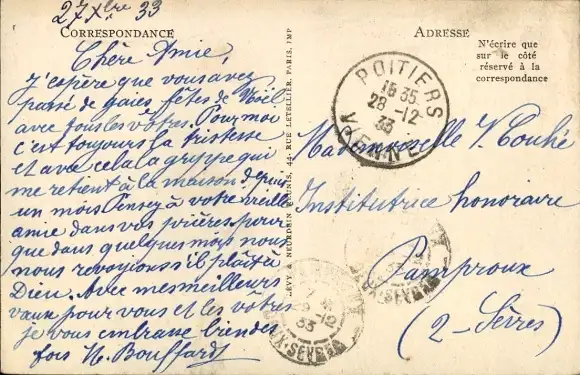 27 Xbre 33
CORRESPONDANCE
Chère Amie,
J'espère que vous avez
passé de gaies fêtes de Noël
avec tous les vôtres. Pour moi
c'est toujours la tristesse
et avec cela la grippe qui
me retient à la maison depuis
un mois Pensez à votre vieille
amie dans vos prières pour
que dans quelques mois nous
nous revoyions s'il plaît à
Dieu. Avec mes meilleurs
vœux pour vous et les vôtres
je vous embrasse bien des
fois N. Bouffard
LÉVY & NEURDEIN RÉUNIS, 44, RUE LETELLIER, PARIS, IMP
ADRESSE
N'écrire que
sur le côté
réservé à la
correspondance
POITIERS
16 35
28-12
33
VIENNE
Mademoiselle V. Couhé
Institutrice honoraire
Pamproux
(2-Sèvres)
29-12
33
X-SÈVRES